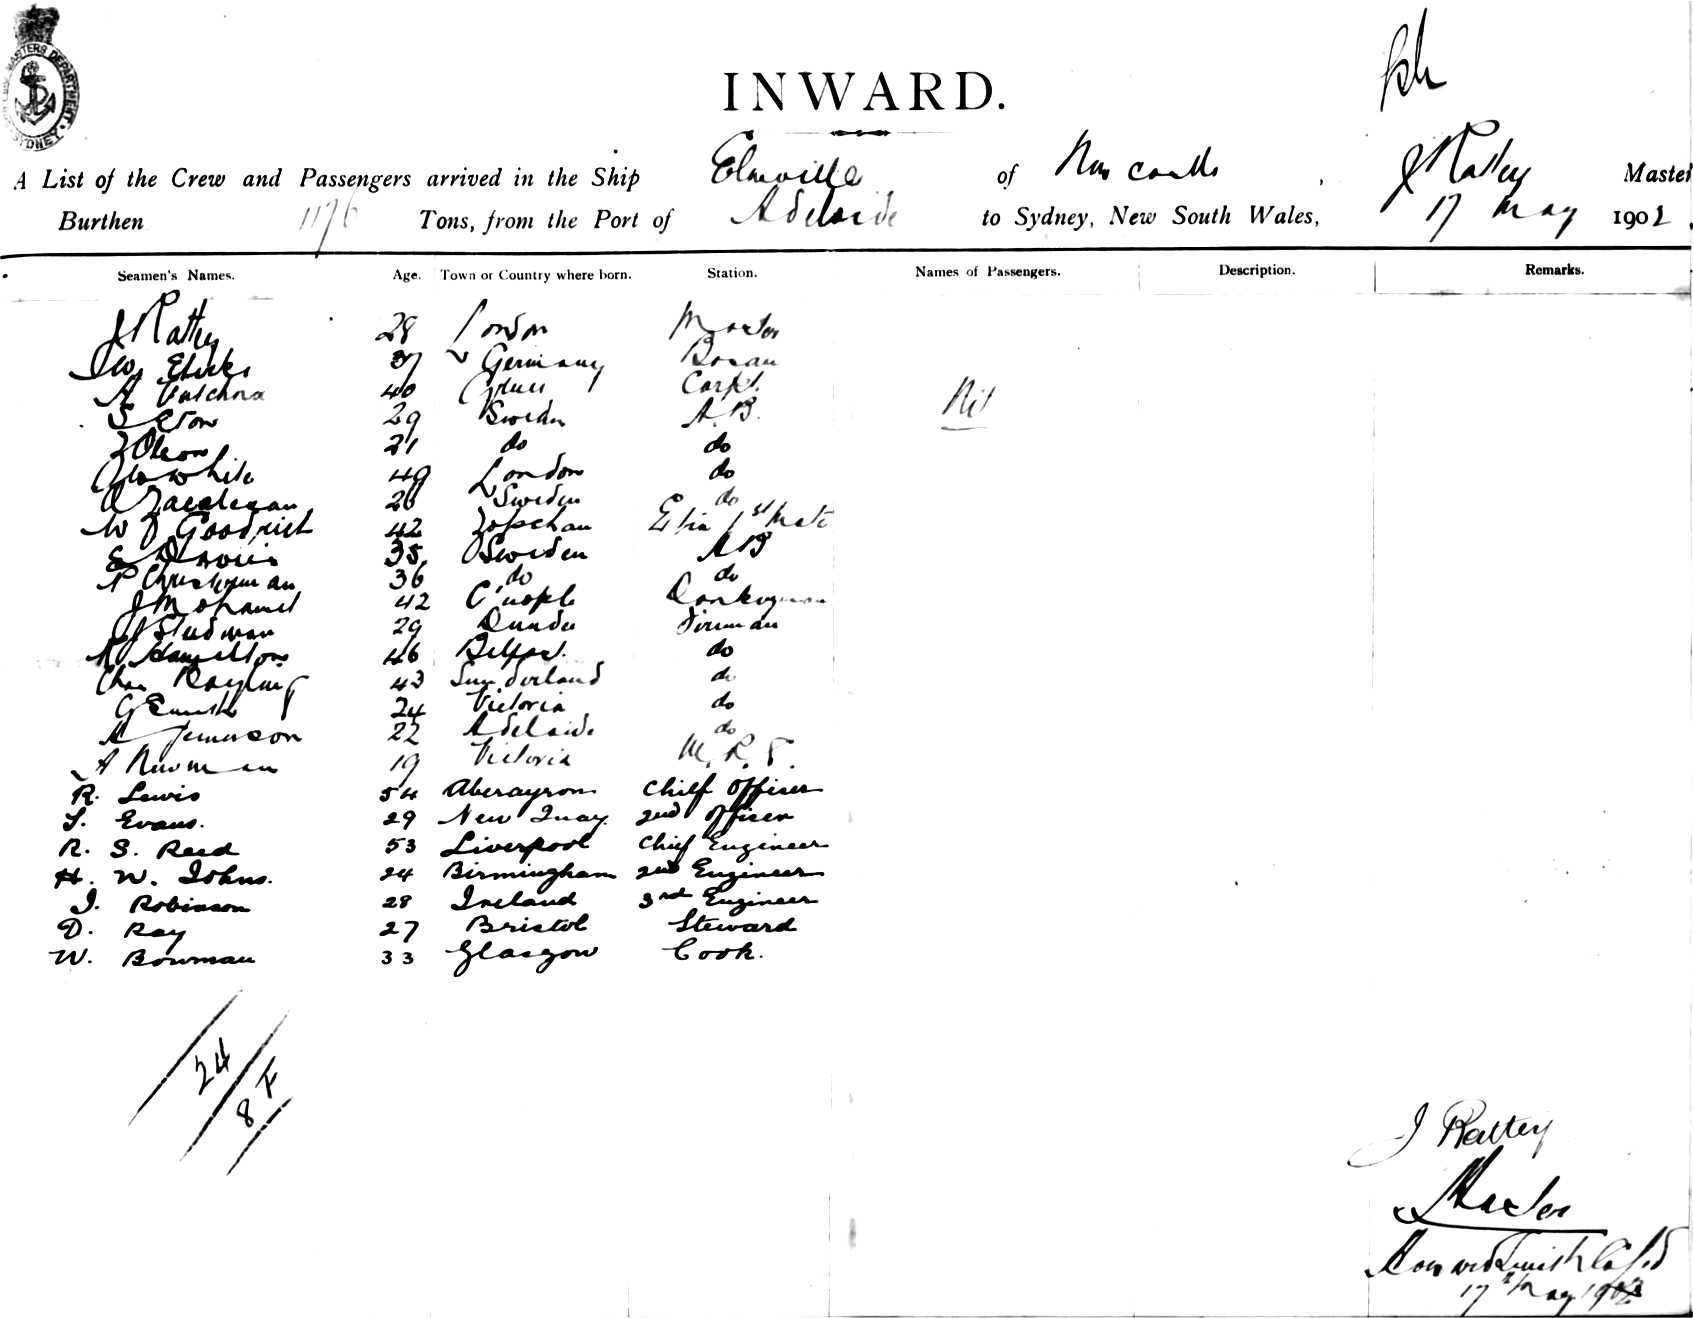 MASTERS DEPARTMENT. SYDNEY
INWARD.
A List of the Crew and Passengers arrived in the Ship Elmville of Newcastle, J Rattey Master
Burthen 1176 Tons, from the Port of Adelaide to Sydney, New South Wales, 17 May 1902.
Seamen's Names. Age. Town or Country where born. Station. Names of Passengers. Description. Remarks.
J Rattey 28 London Master
37 Germany Bosun
A 40 Carpt.
29 Sweden A.B. Nil
Olson 21 do do
White 49 London do
26 Sweden do
W J Goodrich 42 1st Mate
E Davies 35 Sweden AB
P 36 do do
J Mohamed 42 C'nople Donkeyman
J Studman 29 Dundee Fireman
R Hamilton 46 Belfast. do
Chas Rayling 43 Sunderland do
G 24 Victoria do
A 22 Adelaide do
A Newman 19 Victoria M. R. S.
R. Lewis 54 Aberayron Chief Officer
S. Evans. 29 New Quay. 2nd Officer
R. S. Reed 53 Liverpool Chief Engineer
H. W. Johns. 24 Birmingham 2nd Engineer
J. Robinson 28 Ireland 3rd Engineer
D. Ray 27 Bristol Steward
W. Bowman 33 Glasgow Cook.
24
8 F
J Rattey
Master
Howard Smith Co Ld
17th May 1902